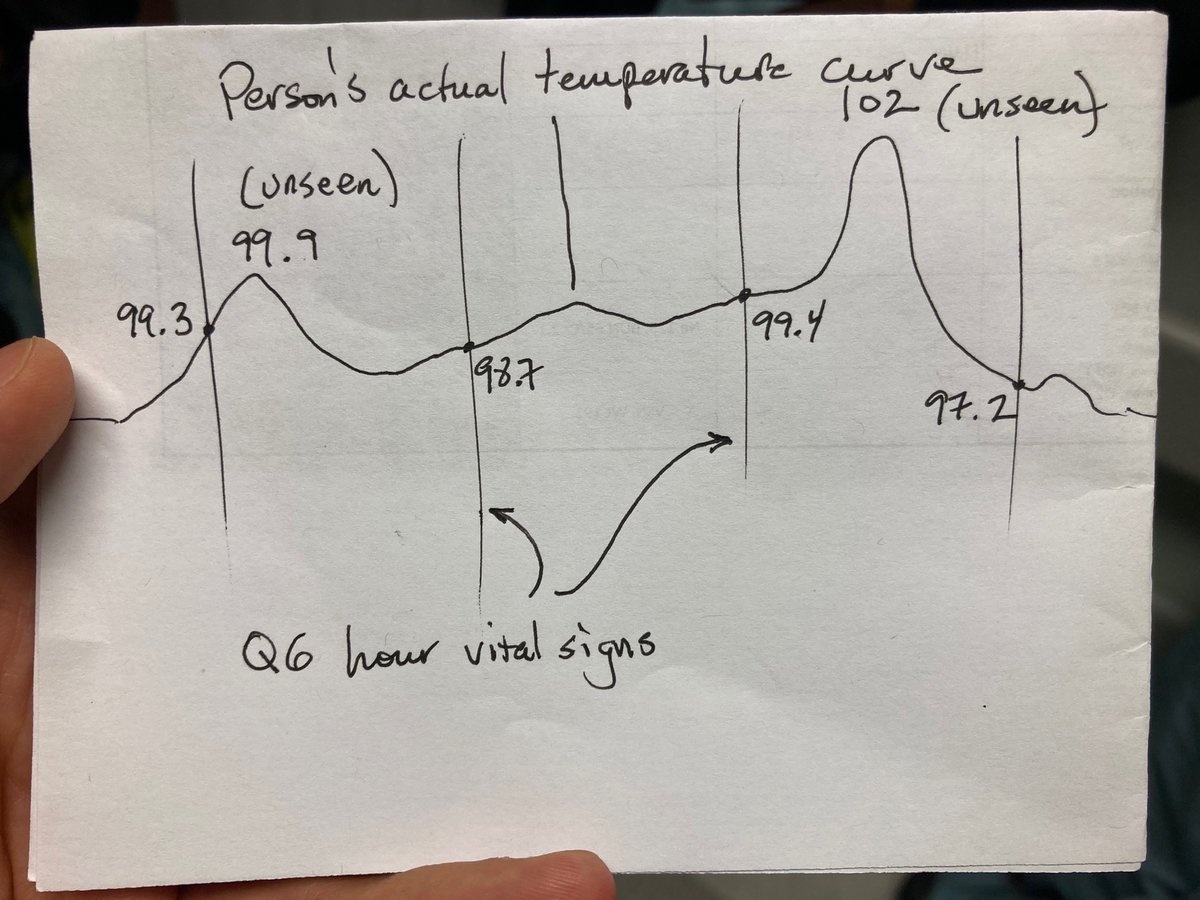 Person's actual temperature curve
102 (unseen)
(unseen)
99.9
99.3
98.7
99.4
97.2
Q6 hour vital signs